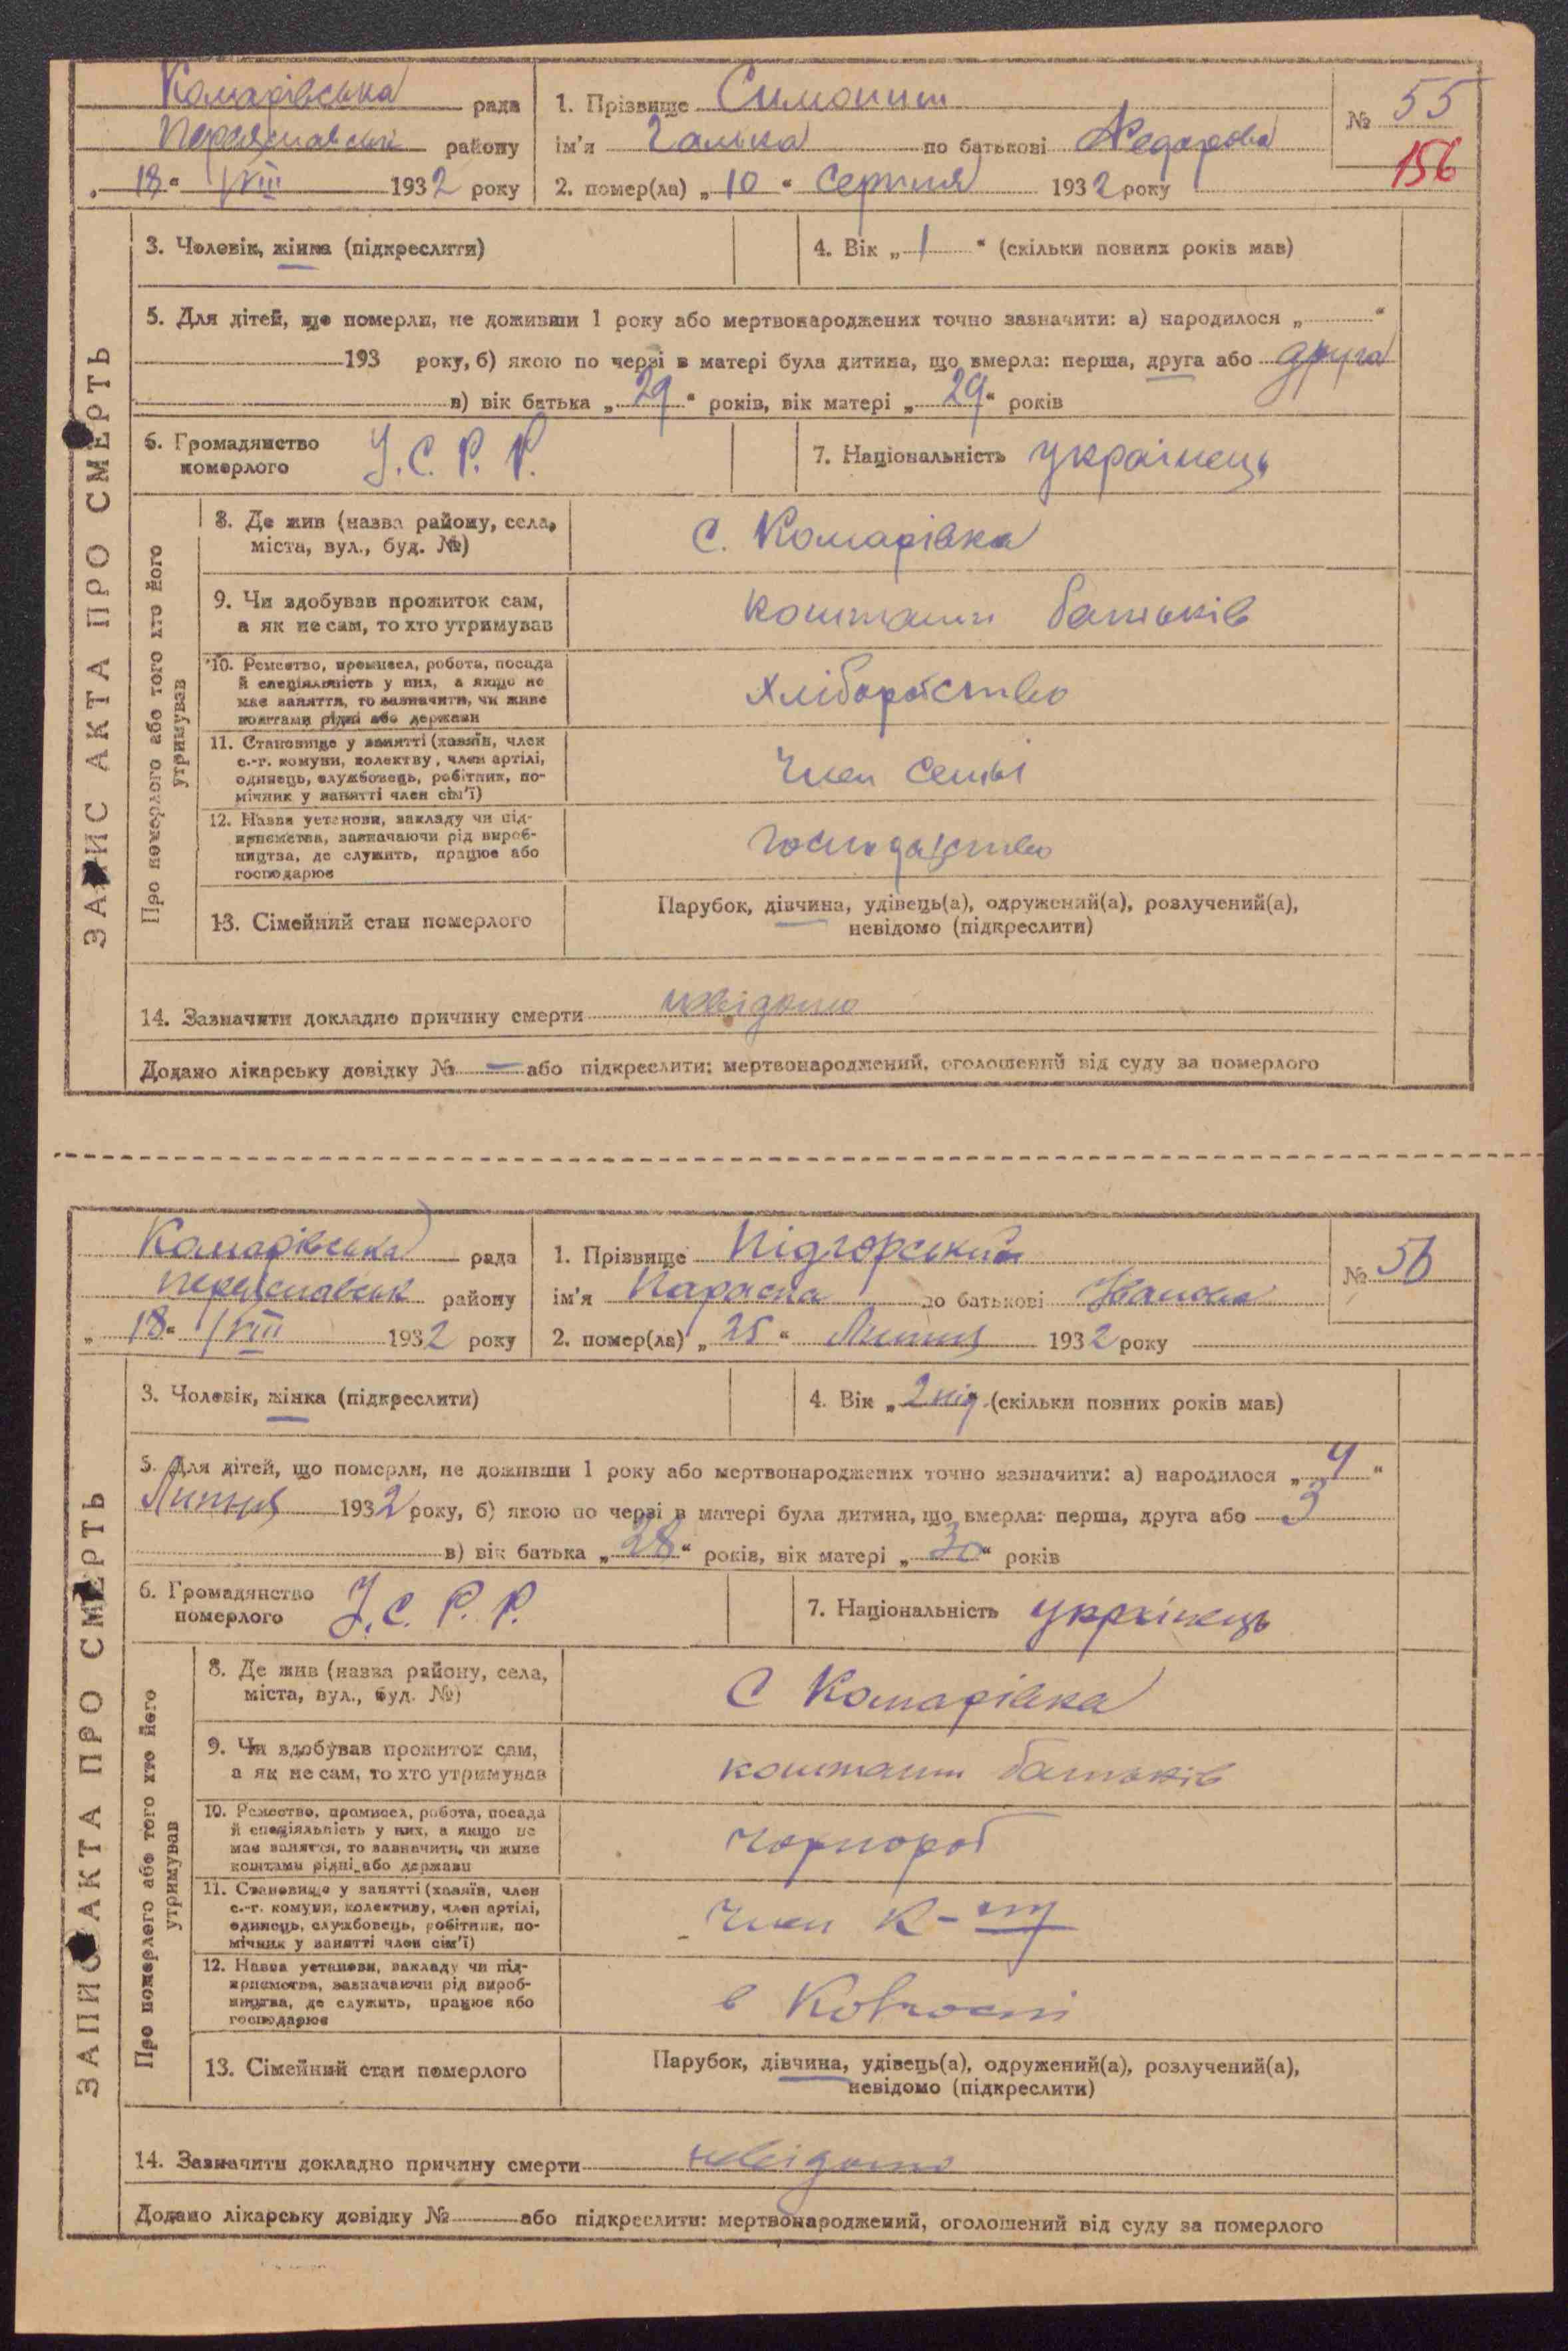 Комарівська рада
Переяславськ району
„ 18 “ /VIII 1932 року
1. Прізвище Симонит
ім'я Галька по батькові Федорова
2. помер(ла) „ 10 “ Серпня 1932 року
№ 55
156
ЗАПИС АКТА ПРО СМЕРТЬ
3. Чоловік, жінка (підкреслити)
4. Вік „ 1 “ (скільки повних років мав)
5. Для дітей, що померли, не доживши 1 року або мертвонароджених точно зазначити: а) народилося „ “
193 року, б) якою по черзі в матері була дитина, що вмерла: перша, друга або друга
в) вік батька „ 29 “ років, вік матері „ 29 “ років
6. Громадянство
померлого
У. С. Р. Р.
7. Національність українець
Про померлого або того хто його
утримував
8. Де жив (назва району, села,
міста, вул., буд. №)
с. Комарівка
9. Чи здобував прожиток сам,
а як не сам, то хто утримував
коштами батьків
10. Ремество, промисел, робота, посада
й спеціяльність у них, а якщо не
має заняття, то зазначити, чи живе
коштами рідні або держави
Хліборобство
11. Становище у занятті (хазяїн, член
с.-г. комуни, колективу, член артілі,
одинець, службовець, робітник, по-
мічник у занятті член сім'ї)
член семьі
12. Назва установи, закладу чи під-
приємства, зазначаючи рід вироб-
ництва, де служить, працює або
господарює
13. Сімейний стан померлого
Парубок, дівчина, удівець(а), одружений(а), розлучений(а),
невідомо (підкреслити)
14. Зазначити докладно причину смерти невідомо
Додано лікарську довідку № — або підкреслити: мертвонароджений, оголошений від суду за померлого
Комарівська рада
Переяславськ району
„ 18 “ /VIII 1932 року
1. Прізвище Підгорський
ім'я Параска по батькові Іванова
2. помер(ла) „ 25 “ Липня 1932 року
№ 56
ЗАПИС АКТА ПРО СМЕРТЬ
3. Чоловік, жінка (підкреслити)
4. Вік „ 2 нід. (скільки повних років мав)
5. Для дітей, що померли, не доживши 1 року або мертвонароджених точно зазначити: а) народилося „ 4 “
Липня 1932 року, б) якою по черзі в матері була дитина, що вмерла: перша, друга або 3
в) вік батька „ 28 “ років, вік матері „ 30 “ років
6. Громадянство
померлого
У. С. Р. Р.
7. Національність українець
Про померлого або того хто його
утримував
8. Де жив (назва району, села,
міста, вул., буд. №)
С Комарівка
9. Чи здобував прожиток сам,
а як не сам, то хто утримував
коштами батьків
10. Ремество, промисел, робота, посада
й спеціяльність у них, а якщо не
має заняття, то зазначити, чи живе
коштами рідні або держави
чорнороб
11. Становище у занятті (хазяїн, член
с.-г. комуни, колективу, член артілі,
одинець, службовець, робітник, по-
мічник у занятті член сім'ї)
член к-т
12. Назва установи, закладу чи під-
приємства, зазначаючи рід вироб-
ництва, де служить, працює або
господарює
в Колгоспі
13. Сімейний стан померлого
Парубок, дівчина, удівець(а), одружений(а), розлучений(а),
невідомо (підкреслити)
14. Зазначити докладно причину смерти невідомо
Додано лікарську довідку № або підкреслити: мертвонароджений, оголошений від суду за померлого